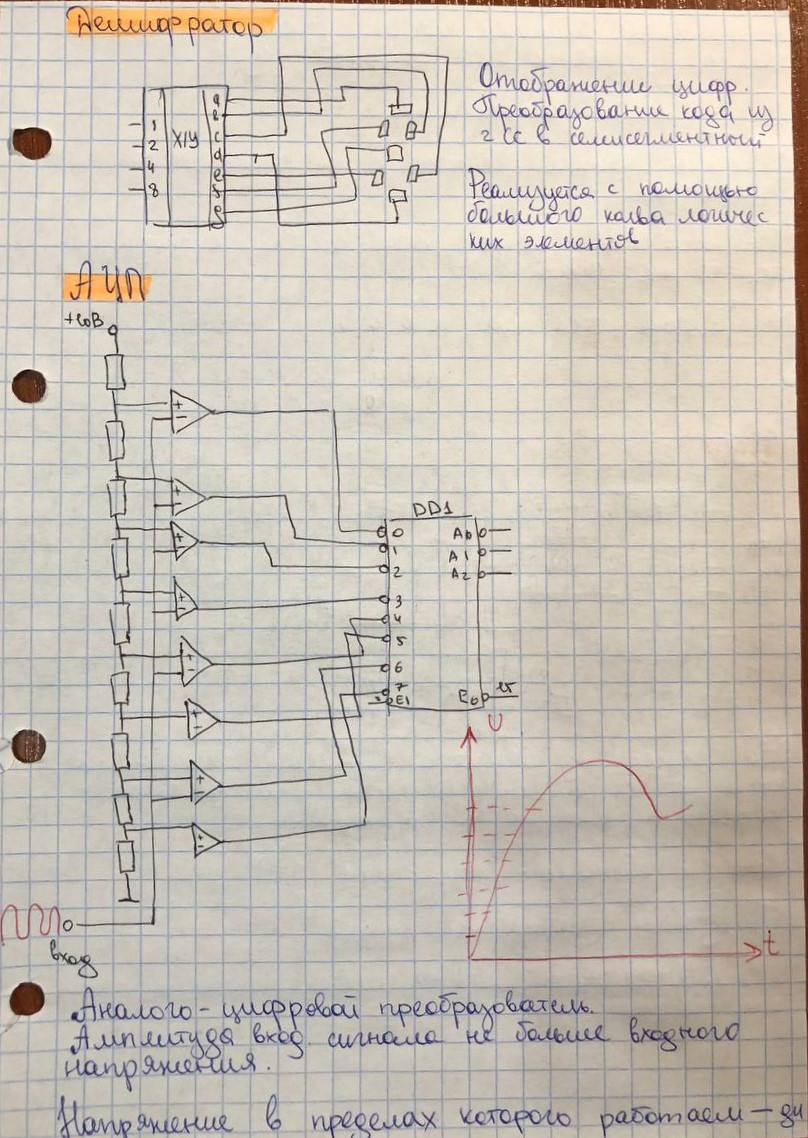 Дешифратор
Отображение цифр.
Преобразование кода из
2 СС в семисегментный
Реализуется с помощью
большого кол-ва логичес
ких элементов
1
2
4
8
X/Y
a
b
c
d
e
f
g
АЦП
+10В
+
−
+
−
+
−
+
−
+
−
+
−
+
−
+
−
DD1
0
1
2
3
4
5
6
7
E1
A0
A1
A2
E0
U
t
вход
Аналого-цифровой преобразователь.
Амплитуда вход. сигнала не больше входного
напряжения.
Напряжение в пределах которого работаем —